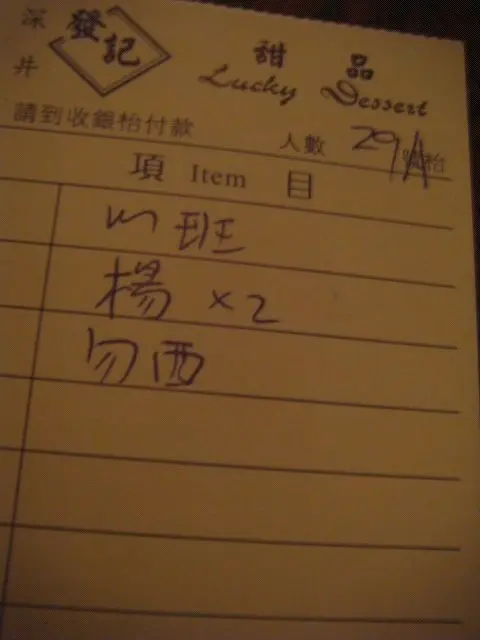 深井 發記 甜品
Lucky Dessert
請到收銀枱付款 人數 29/ 枱
項 Item 目
班
楊 x2
勿西